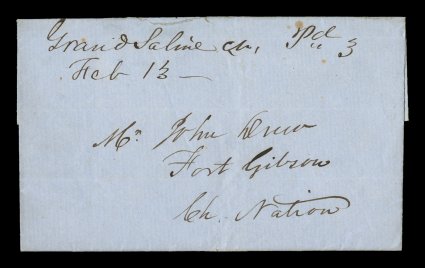 Grand Saline CN, Pd 3
Feb 13
Mr. John Drew
Fort Gibson
Ch. Nation